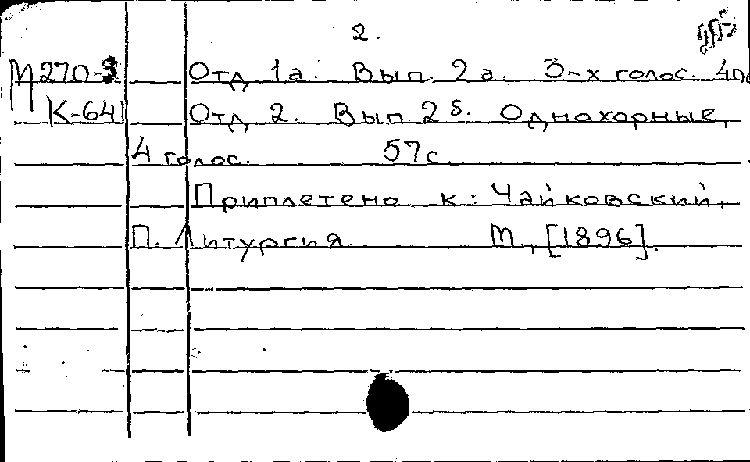 2.
М270-3 Отд 1а. Вып. 2а. 3-х голос.
К-64 Отд 2. Вып 2б. Однохорные,
4 голос. 57с
Приплетено к: Чайковский,
П. Литургия М., [1896].